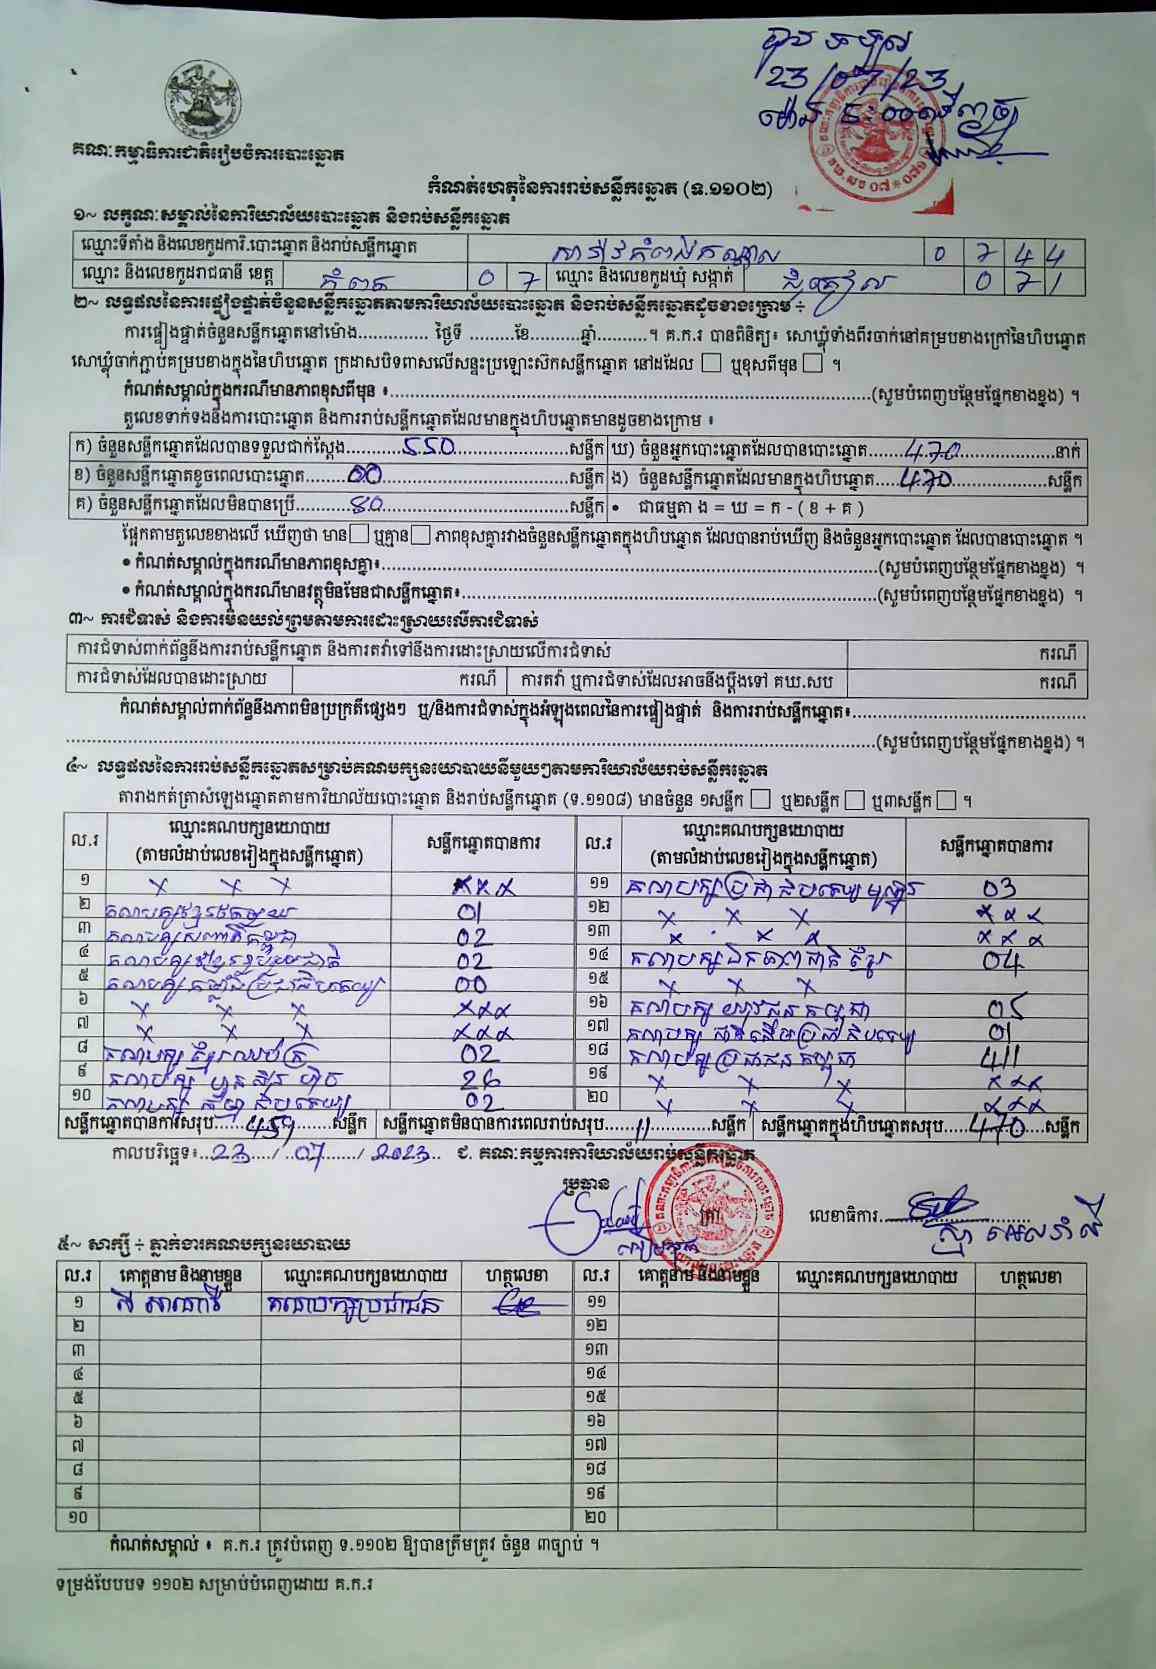 23/07/23
គណៈកម្មាធិការជាតិរៀបចំការបោះឆ្នោត
កំណត់ហេតុនៃការរាប់សន្លឹកឆ្នោត (ទ.១១០២)
១~ លក្ខណៈសម្គាល់នៃការិយាល័យបោះឆ្នោត និងរាប់សន្លឹកឆ្នោត
ឈ្មោះទីតាំង និងលេខកូដការិ.បោះឆ្នោត និងរាប់សន្លឹកឆ្នោត 0 7 4 4
ឈ្មោះ និងលេខកូដរាជធានី ខេត្ត កំពត 0 7 ឈ្មោះ និងលេខកូដឃុំ សង្កាត់ 0 7 1
២~ លទ្ធផលនៃការផ្ទៀងផ្ទាត់ចំនួនសន្លឹកឆ្នោតតាមការិយាល័យបោះឆ្នោត និងរាប់សន្លឹកឆ្នោតដូចខាងក្រោម ÷
ការផ្ទៀងផ្ទាត់ចំនួនសន្លឹកឆ្នោតនៅម៉ោង.............. ថ្ងៃទី .........ខែ..........ឆ្នាំ..........។ គ.ក.រ បានពិនិត្យ៖ សោឃ្លុំទាំងពីរចាក់នៅគម្របខាងក្រៅនៃហិបឆ្នោត
សោឃ្លុំចាក់ភ្ជាប់គម្របខាងក្នុងនៃហិបឆ្នោត ក្រដាសបិទពាសលើសន្ទះប្រឡោះស៊កសន្លឹកឆ្នោត នៅដដែល ☐ ឬខុសពីមុន ☐ ។
កំណត់សម្គាល់ក្នុងករណីមានភាពខុសពីមុន ៖..........(សូមបំពេញបន្ថែមផ្នែកខាងខ្នង) ។
តួលេខទាក់ទងនឹងការបោះឆ្នោត និងការរាប់សន្លឹកឆ្នោតដែលមានក្នុងហិបឆ្នោតមានដូចខាងក្រោម ៖
ក) ចំនួនសន្លឹកឆ្នោតដែលបានទទួលជាក់ស្តែង..........550..........សន្លឹក ឃ) ចំនួនអ្នកបោះឆ្នោតដែលបានបោះឆ្នោត.......470..........នាក់
ខ) ចំនួនសន្លឹកឆ្នោតខូចពេលបោះឆ្នោត........00..........សន្លឹក ង) ចំនួនសន្លឹកឆ្នោតដែលមានក្នុងហិបឆ្នោត.....470..........សន្លឹក
គ) ចំនួនសន្លឹកឆ្នោតដែលមិនបានប្រើ..........80..........សន្លឹក • ជាធម្មតា ង = ឃ = ក - ( ខ + គ )
ផ្អែកតាមតួលេខខាងលើ ឃើញថា មាន ☐ ឬគ្មាន ☐ ភាពខុសគ្នារវាងចំនួនសន្លឹកឆ្នោតក្នុងហិបឆ្នោត ដែលបានរាប់ឃើញ និងចំនួនអ្នកបោះឆ្នោត ដែលបានបោះឆ្នោត ។
• កំណត់សម្គាល់ក្នុងករណីមានភាពខុសគ្នា៖..........(សូមបំពេញបន្ថែមផ្នែកខាងខ្នង) ។
• កំណត់សម្គាល់ក្នុងករណីមានវត្ថុមិនមែនជាសន្លឹកឆ្នោត៖..........(សូមបំពេញបន្ថែមផ្នែកខាងខ្នង) ។
៣~ ការជំទាស់ និងការមិនយល់ព្រមតាមការដោះស្រាយលើការជំទាស់
ការជំទាស់ពាក់ព័ន្ធនឹងការរាប់សន្លឹកឆ្នោត និងការតវ៉ាទៅនឹងការដោះស្រាយលើការជំទាស់ ករណី
ការជំទាស់ដែលបានដោះស្រាយ ករណី ការតវ៉ា ឬការជំទាស់ដែលអាចនឹងប្តឹងទៅ គឃ.សប ករណី
កំណត់សម្គាល់ពាក់ព័ន្ធនឹងភាពមិនប្រក្រតីផ្សេងៗ ឬ/និងការជំទាស់ក្នុងអំឡុងពេលនៃការផ្ទៀងផ្ទាត់ និងការរាប់សន្លឹកឆ្នោត៖..........
..........(សូមបំពេញបន្ថែមផ្នែកខាងខ្នង) ។
៤~ លទ្ធផលនៃការរាប់សន្លឹកឆ្នោតសម្រាប់គណបក្សនយោបាយនីមួយៗតាមការិយាល័យរាប់សន្លឹកឆ្នោត
តារាងកត់ត្រាសំឡេងឆ្នោតតាមការិយាល័យបោះឆ្នោត និងរាប់សន្លឹកឆ្នោត (ទ.១១០៨) មានចំនួន ១សន្លឹក ☐ ឬ២សន្លឹក ☐ ឬ៣សន្លឹក ☐ ។
ល.រ ឈ្មោះគណបក្សនយោបាយ (តាមលំដាប់លេខរៀងក្នុងសន្លឹកឆ្នោត) សន្លឹកឆ្នោតបានការ ល.រ ឈ្មោះគណបក្សនយោបាយ (តាមលំដាប់លេខរៀងក្នុងសន្លឹកឆ្នោត) សន្លឹកឆ្នោតបានការ
១ x x x xxx ១១ គណបក្សប្រជាធិបតេយ្យមូលដ្ឋាន 03
២ 01 ១២ x x x xxx
៣ 02 ១៣ x x x xxx
៤ 02 ១៤ គណបក្សឯកភាពជាតិខ្មែរ 04
៥ 00 ១៥ x x x
៦ x x x xxx ១៦ គណបក្ស យុវជនកម្ពុជា 05
៧ x x x xxx ១៧ 01
៨ 02 ១៨ គណបក្សប្រជាជនកម្ពុជា 411
៩ គណបក្ស ហ្វ៊ុនស៊ិនប៉ិច 26 ១៩ x x x xxx
១០ 02 ២០ x x x xxx
សន្លឹកឆ្នោតបានការសរុប.....459......សន្លឹក សន្លឹកឆ្នោតមិនបានការពេលរាប់សរុប.......11..........សន្លឹក សន្លឹកឆ្នោតក្នុងហិបឆ្នោតសរុប.....470....សន្លឹក
កាលបរិច្ឆេទ៖..23..../..07..../..2023.. ជ. គណៈកម្មការការិយាល័យរាប់សន្លឹកឆ្នោត
ប្រធាន
លេខាធិការ
៥~ សាក្សី ÷ ភ្នាក់ងារគណបក្សនយោបាយ
ល.រ គោត្តនាម និងនាមខ្លួន ឈ្មោះគណបក្សនយោបាយ ហត្ថលេខា ល.រ គោត្តនាម និងនាមខ្លួន ឈ្មោះគណបក្សនយោបាយ ហត្ថលេខា
១ គណបក្សប្រជាជន ១១
២ ១២
៣ ១៣
៤ ១៤
៥ ១៥
៦ ១៦
៧ ១៧
៨ ១៨
៩ ១៩
១០ ២០
កំណត់សម្គាល់ ៖ គ.ក.រ ត្រូវបំពេញ ទ.១១០២ ឱ្យបានត្រឹមត្រូវ ចំនួន ៣ច្បាប់ ។
ទម្រង់បែបបទ ១១០២ សម្រាប់បំពេញដោយ គ.ក.រ